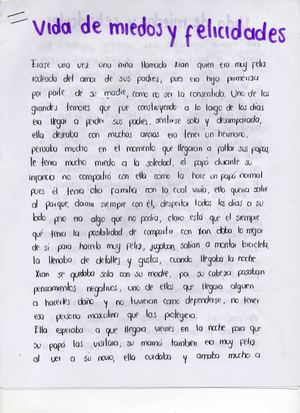 Vida de miedos y felicidades
Erase una vez una niña llamada Xian quien era muy feliz
rodeada del amor de sus padres, pues era hija primeriza
por parte de su madre, como no ser la consentida. Uno de los
grandes temores que fue construyendo a lo largo de los dias
era llegar a perder sus padres, sentirse sola y desamparada,
ella deseaba con muchas ansias era tener un hermano,
pensaba mucho en el momento que llegaran a faltar sus papas,
le tenia mucho miedo a la soledad, el papá durante su
infancia no compartio con ella como lo hace un papá normal
pues él tenia otra familia con la cual vivia, ella queria salir
al parque, dormir siempre con él, despertar todos los dias a su
lado pero era algo que no podia, claro está que el siempre
que tenia la posibilidad de compartir con Xian daba lo mejor
de si para hacerla muy feliz, jugaban, salian a montar bicicleta,
la llenaba de detalles y gustos, cuando llegaba la noche
Xian se quedaba sola con su madre, por su cabeza pasaban
pensamientos negativos, uno de ellos que llegara alguien
a hacerles daño y no tuvieran como defenderse, no tener
esa persona masculina que las protegiera.
Ella esperaba a que llegara viernes en la noche para que
su papá las visitara, su mamá tambien era muy feliz
al ver a su novio, ella cuidaba y amaba mucho a